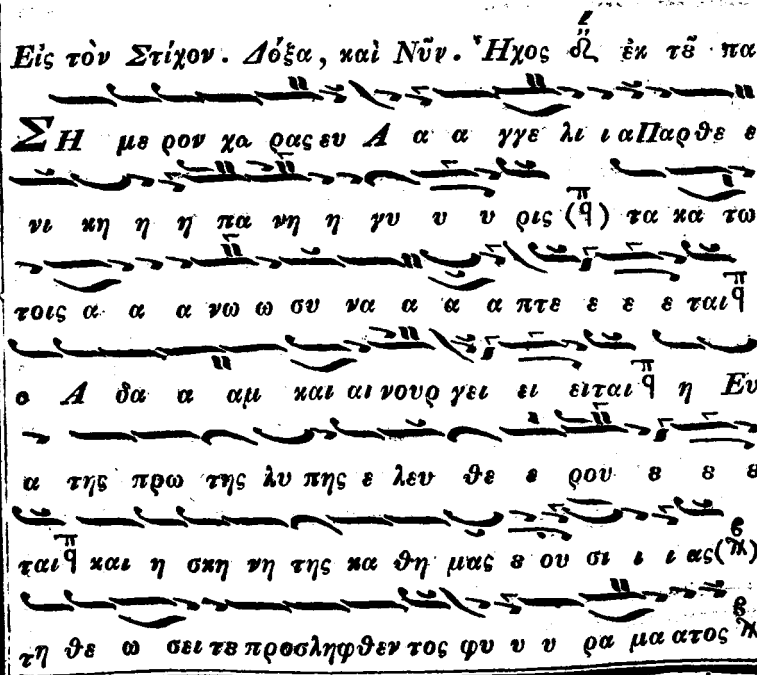 Εἰς τὸν Στίχον. Δόξα, καὶ Νῦν. Ἦχος ἐκ τȣ͂ πα
ΣΗ με ρον χα ρας ευ Α α α γγε λι ι α Παρ θε ε
νι κη η η πα νη η γυ υ υ ρις (π q) τα κα τω
τοις α α α νω ω συ να α α α πτε ε ε ε ται π q
ο Α δα α αμ και αι νουρ γει ει ειται π q η Ευ
α της πρω της λυ πης ε λευ θε ε ρου ȣ ȣ ȣ
ται π q και η σκη νη της κα θη μας ȣ ου σι ι ι ας
τη θε ω σει τε προσληφθεν τος φυ υ υ ρα μα ατος